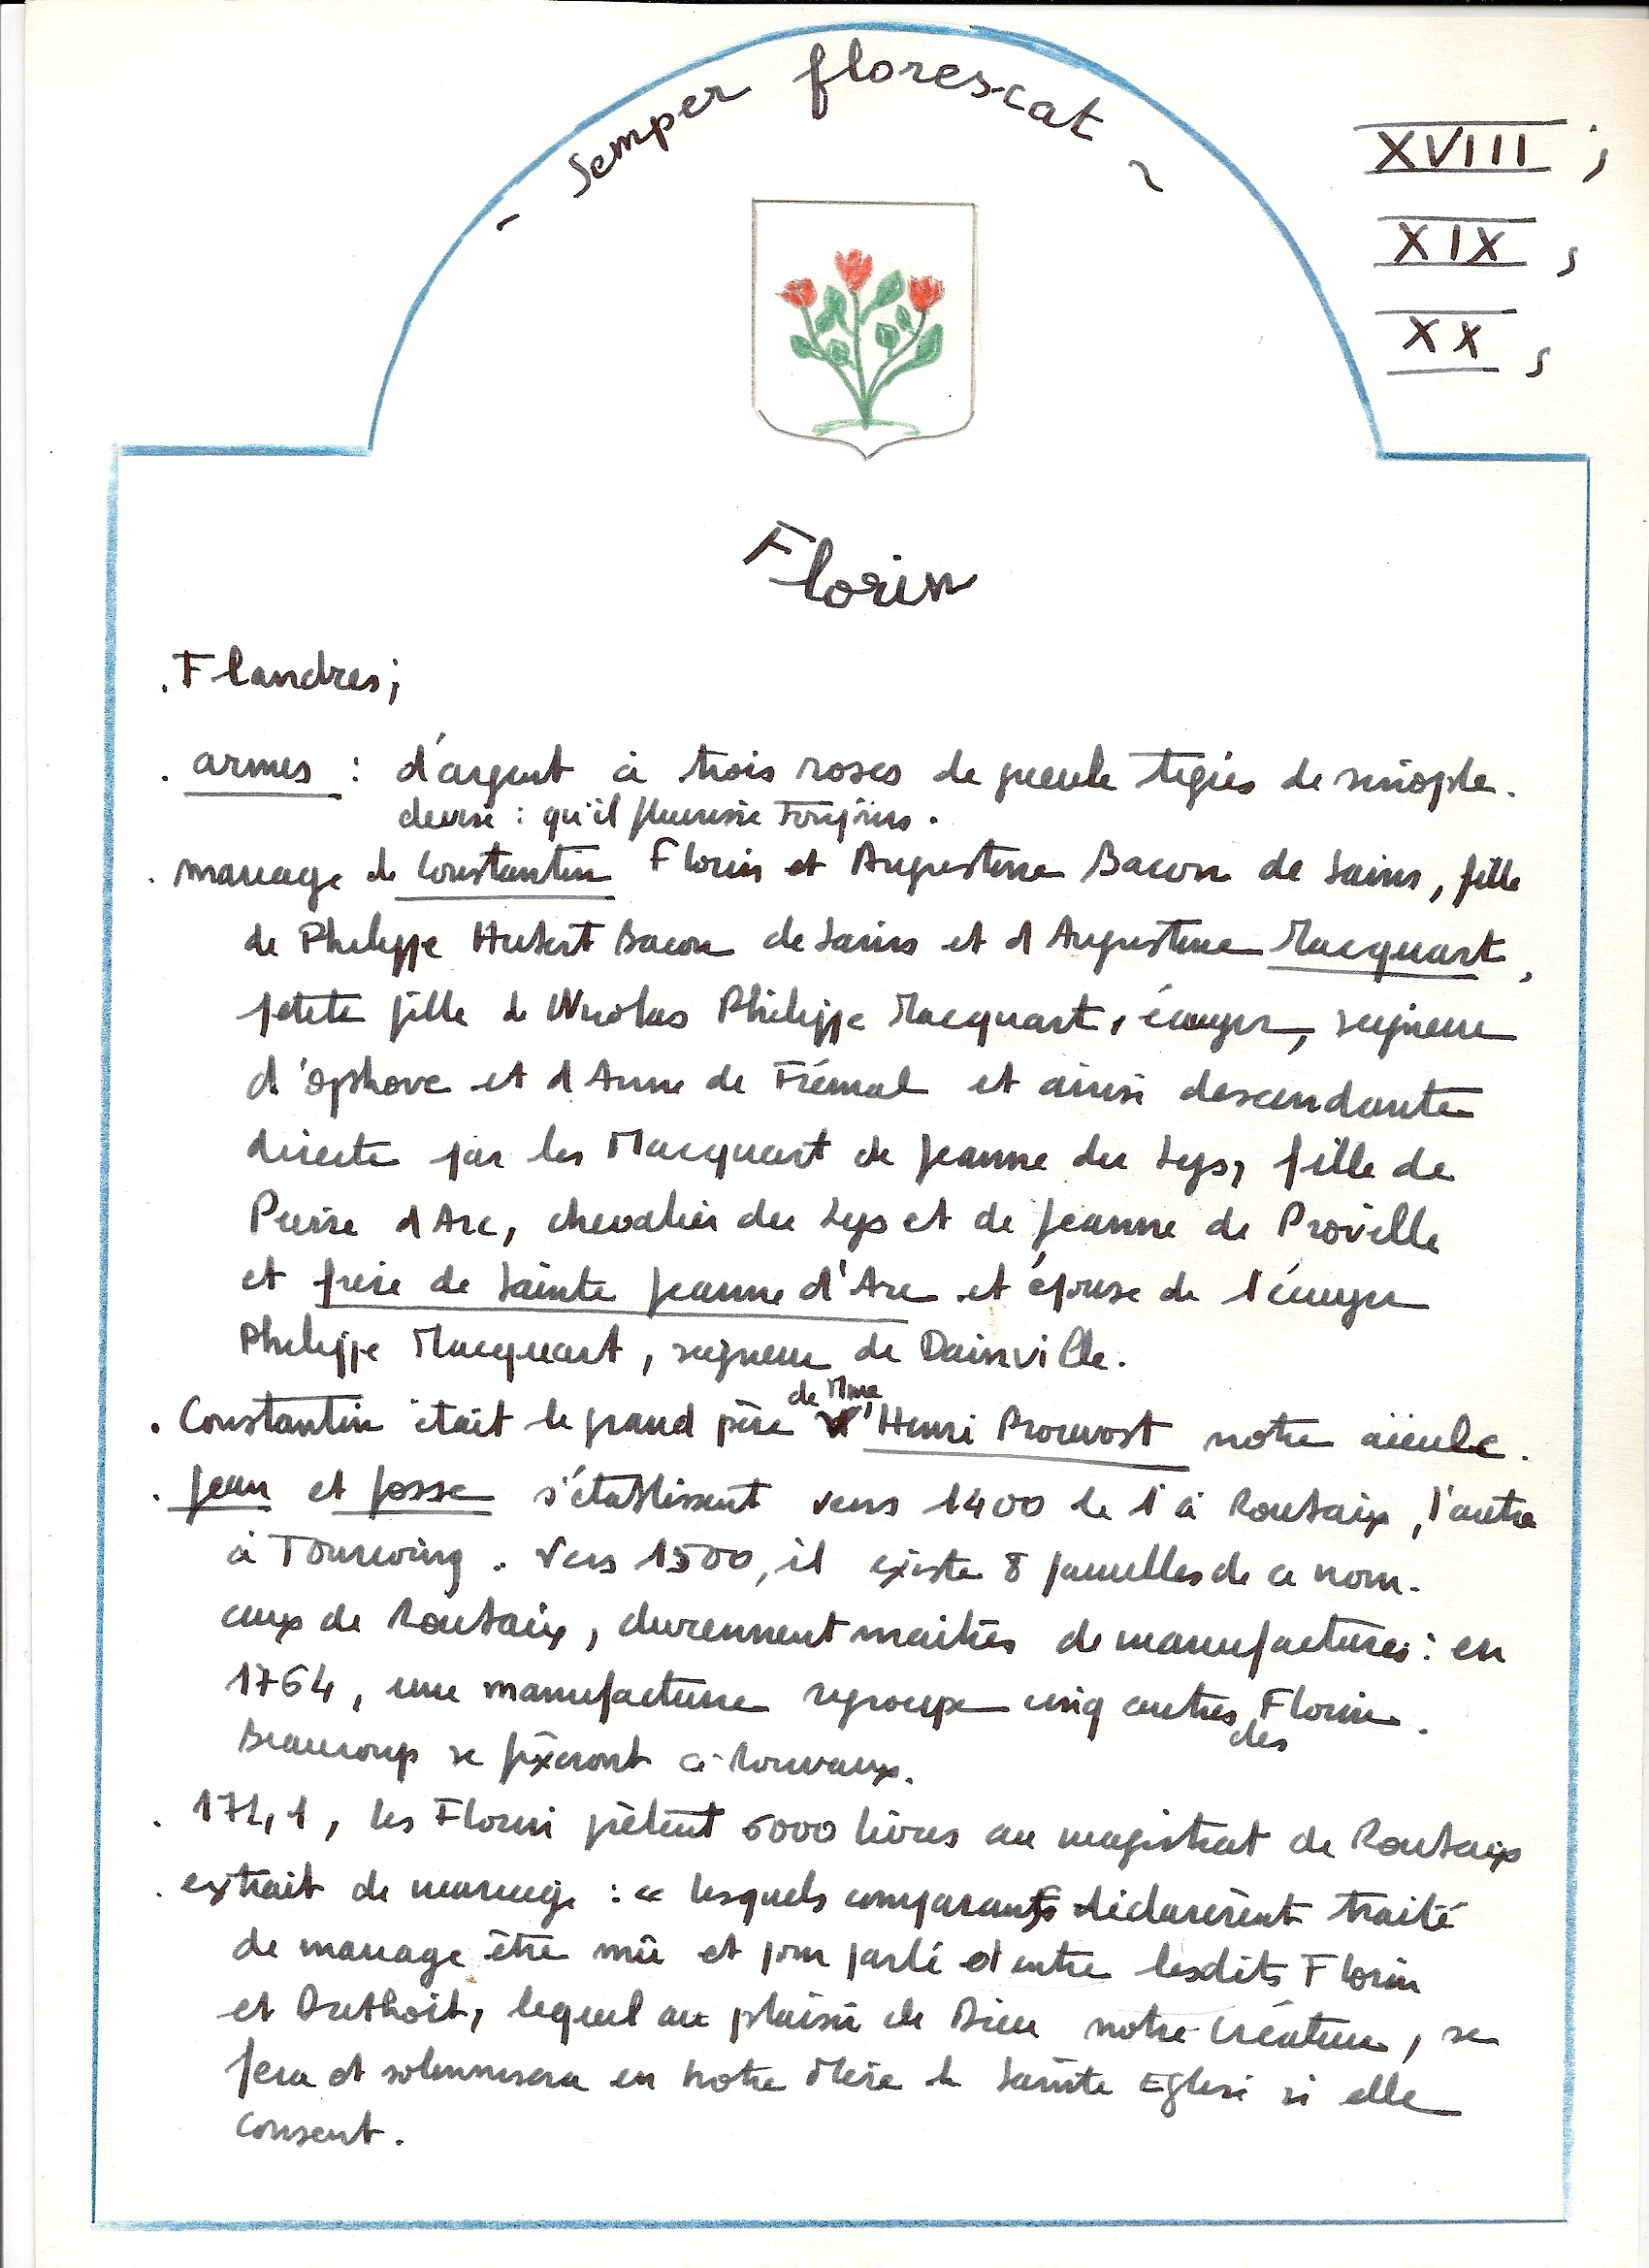 - Semper florescat ~
XVIII ;
XIX ,
XX ,
Florin
. Flandres ;
. armes : d'argent à trois roses de gueule tigées de sinople.
devise : qu'il fleurisse toujours.
. mariage de Constantin Florin et Augustine Bacon de Sains, fille
de Philippe Hubert Bacon de Sains et d'Augustine Macquart,
petite fille de Nicolas Philippe Macquart, écuyer, seigneur
d'Ophove et d'Anne de Frémal et ainsi descendante
directe par les Macquart de Jeanne du Lys, fille de
Pierre d'Arc, chevalier du Lys et de Jeanne de Proville
et frère de Sainte Jeanne d'Arc et épouse de l'écuyer
Philippe Macquart, seigneur de Dainville.
. Constantin était le grand père de Mme Henri Prouvost notre aïeule.
. Jean et Josse s'établissent vers 1400 le 1 à Roubaix, l'autre
à Tourcoing. Vers 1500, il existe 8 familles de ce nom.
ceux de Roubaix, deviennent maitres de manufactures : en
1764, une manufacture regroupe cinq autres des Florin.
Beaucoup se fixeront à Roncq.
. 1741, les Florin prêtent 6000 livres au magistrat de Roubaix
. extrait de mariage : " lesquels comparants déclarèrent traité
de mariage être mû et pour parlé d'entre lesdits Florin
et Duthoit, lequel au plaisir de Dieu notre Créateur, se
fera et solennisera en notre Mère la Sainte Eglise si elle
consent.